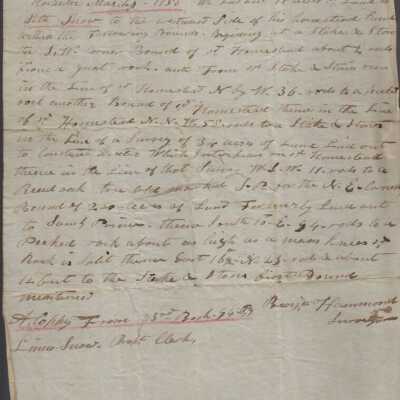 Rochester March 9 - 1755 We laid out 12 acres of Land to
Seth Snow to the westward Side of his homestead Land
within the Following Bounds. Begining at a Stake & Stones
the S. W. corner Bound of sd Homestead about 4 rods
from a great rock. and From sd Stake & Stones run
in the Line of sd Homestead N. by W. 36. rods to a
rock another Bound of sd Homestead thence in the Line
of sd Homestead N. N. 5 rods to a Stake & Stones
in the Line of a Survey of 30 acres of Land Laid out
to Constant Dexter Which Joins upon sd Homestead
thence in the Line of that Survey W. S. W. 11. rods to a
Reed oak tree old marked I. P. in the N. E. Corner
Bound of 20 acres of Land Formerly Laid out
to Saml Prince. thence South 10. E. 94. rods to a
Peeked rock about as high as a mans knees sd
Rock is Split thence East 16 N. 43. rods & about
12 feet to the Stake & Stones first Bound
mentioned
A Coppy From 3rd Book. 94
Benja Hammond
Surveyor
Linus Snow. Prop Clerk.